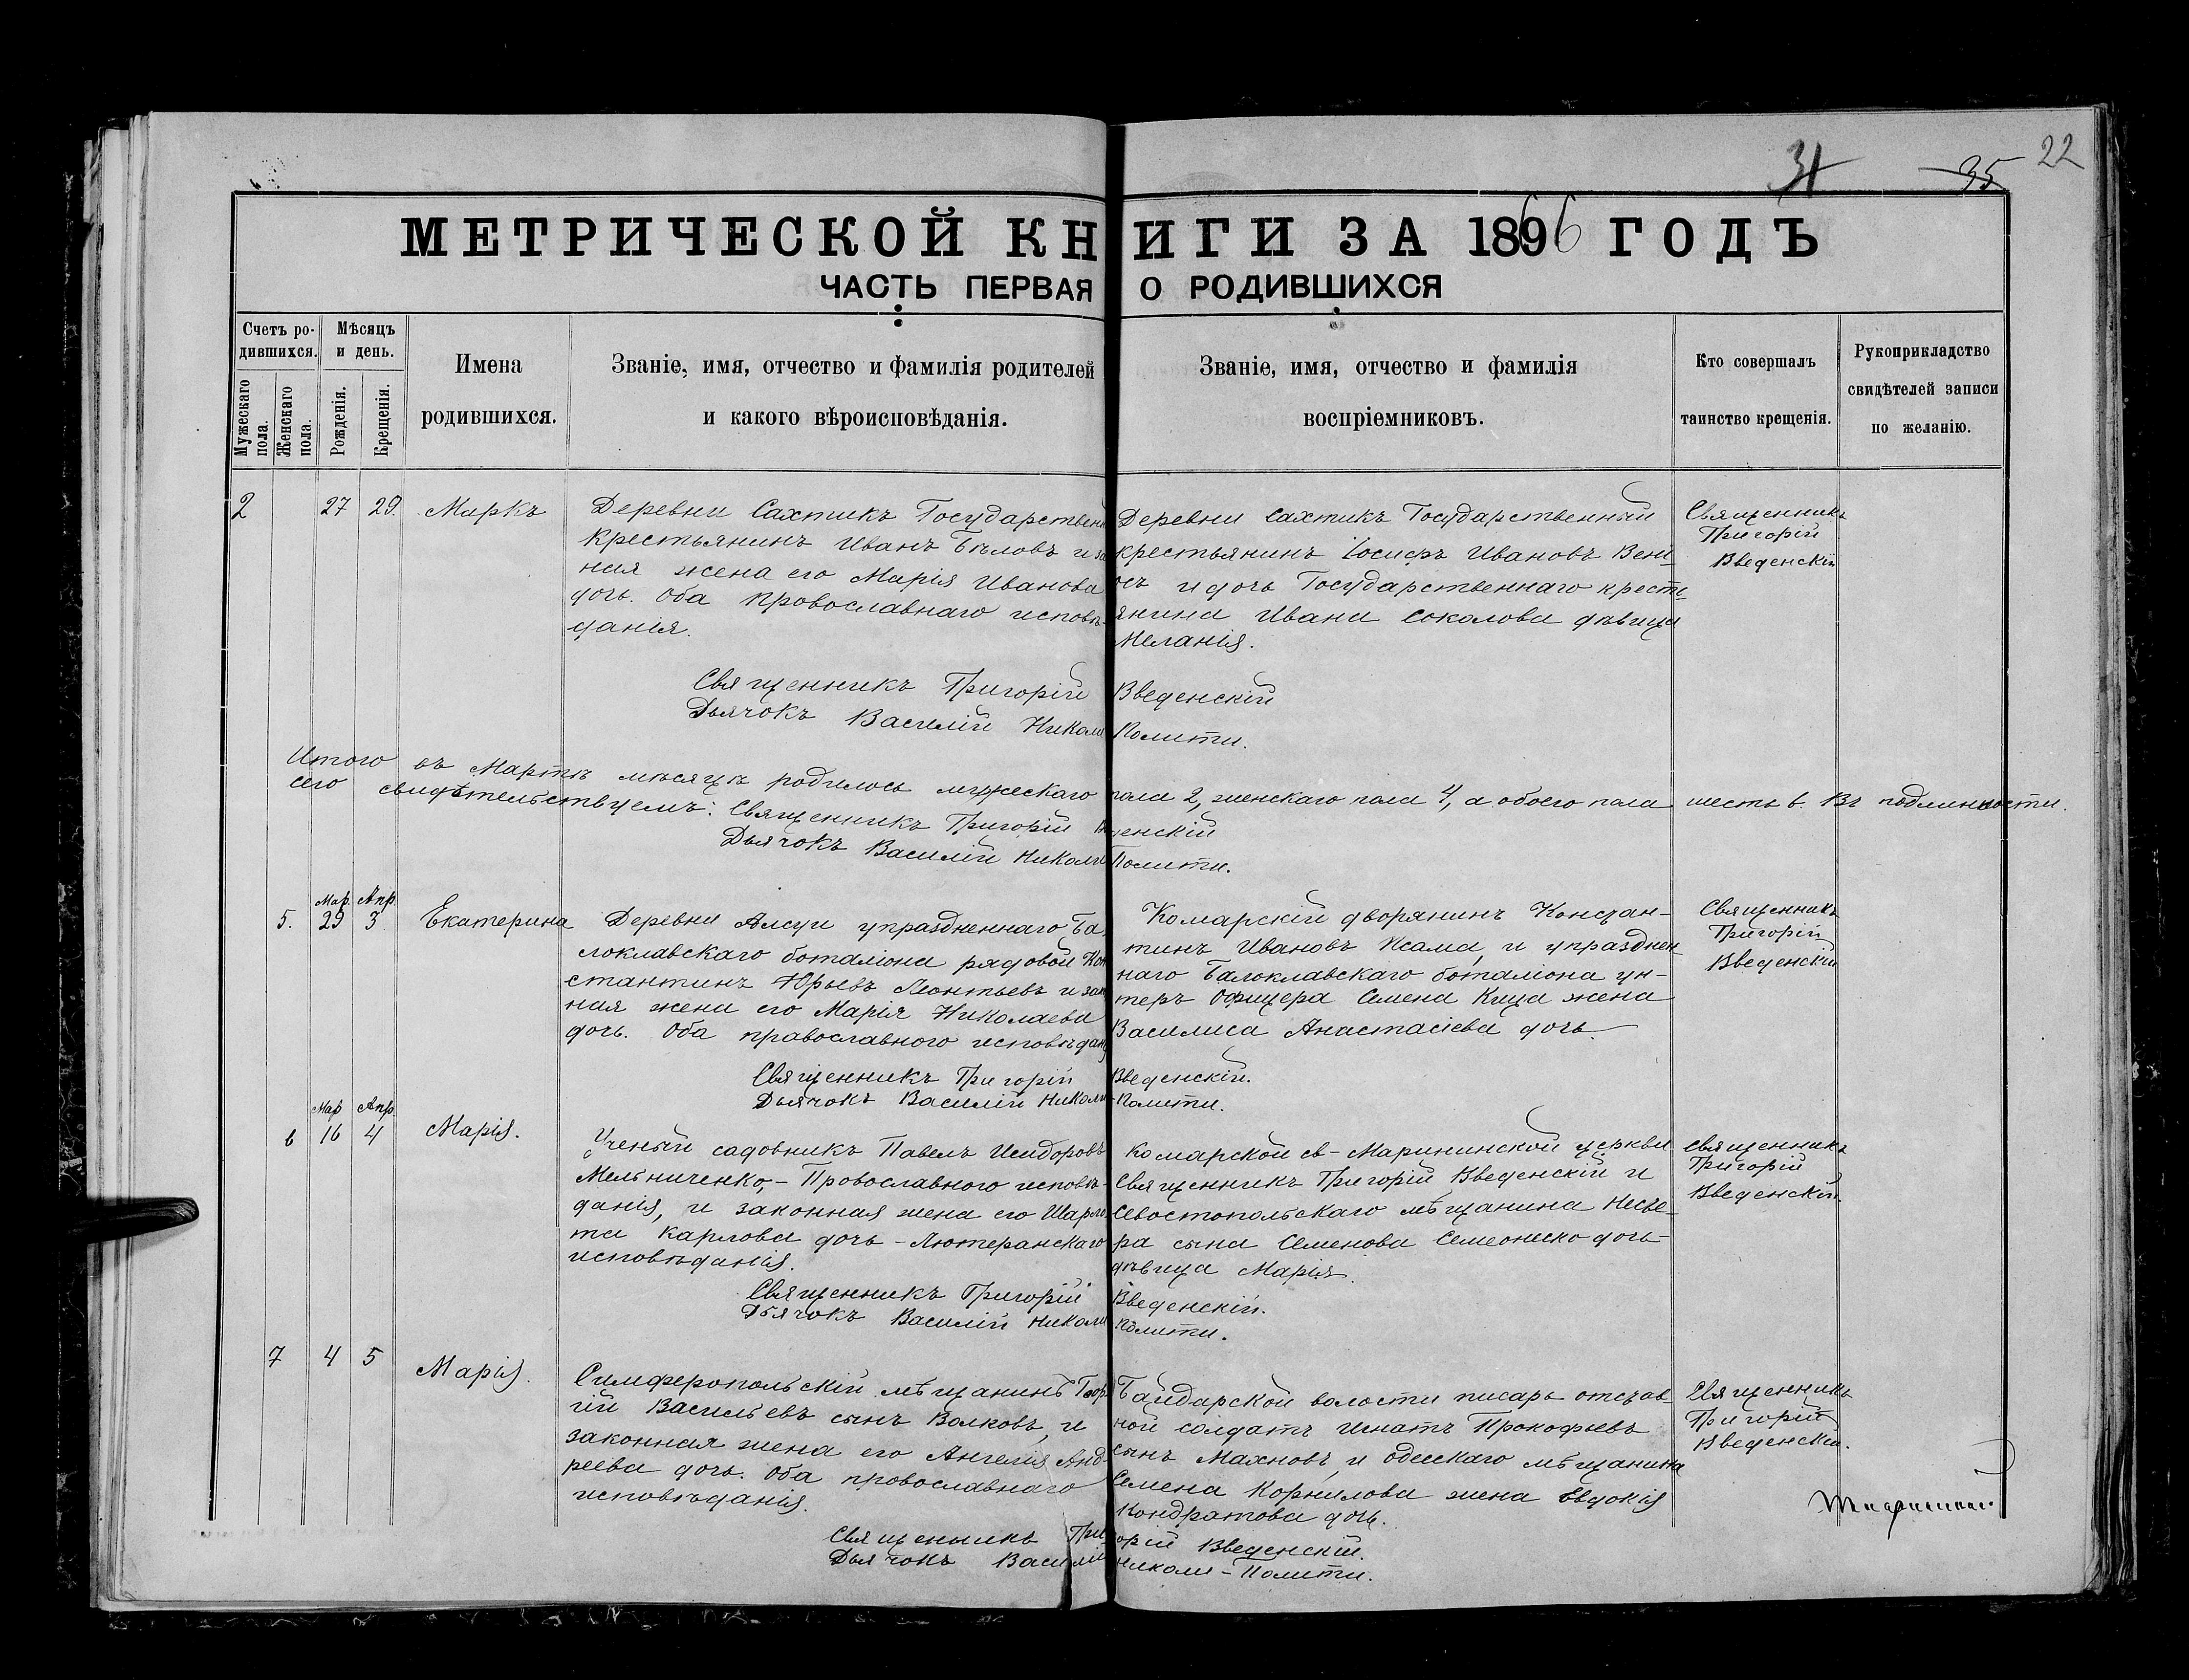 31 35 22
МЕТРИЧЕСКОЙ КНИГИ ЗА 1896 ГОДЪ
ЧАСТЬ ПЕРВАЯ О РОДИВШИХСЯ
Счетъ родившихся.
Мужескаго пола.
Женскаго пола.
Мѣсяцъ и день.
Рожденія.
Крещенія.
Имена
родившихся.
Званіе, имя, отчество и фамилія родителей
и какого вѣроисповѣданія.
Званіе, имя, отчество и фамилія
воспріемниковъ.
Кто совершалъ
таинство крещенія.
Рукоприкладство
свидѣтелей записи
по желанію.
2 27 29. Маркъ
Деревни Сахтикъ Государствен
крестьянинъ Иванъ Бѣловъ и за
ная жена его Марія Иванова
дочь. Оба провославнаго исповѣ-
данія.
Деревни Сахтикъ Государственный
крестьянинъ Іосифъ Ивановъ Вени-
осъ и дочь Государственнаго кресть-
янина Ивана Соколова дѣвица
Меланія.
Священникъ
Григорій
Введенскій
Священникъ Григорій Введенскій
Дьячокъ Василій Никола Полити.
Итого въ Мартѣ мѣсяцѣ родилось мужескаго пола 2, женскаго пола 4, а обоего пола шесть 6. Въ подлинности
сего свидѣтельствуемъ: Священникъ Григорій Введенскій
Дьячокъ Василій Никола Полити.
Мар. Апр.
5. 29 3 Екатерина
Деревни Алсу упраздненнаго Ба
локлавскаго боталіона рядовой Кон
стантинъ Юрьевъ Леонтьевъ и зак
ная жена его Марія Николаева
дочь. Оба православного исповѣдан
Комарскій дворянинъ Констан-
тинъ Ивановъ Ксама, и упразднен
наго Балоклавскаго боталіона ун-
теръ офицера Семена Куца жена
Василиса Анастасіева дочь.
Священникъ
Григорій
Введенскій
Священникъ Григорій Введенскій.
Дьячокъ Василій Никола-Полити.
Мар Апр
6 16 4 Марія.
Ученый садовникъ Павелъ Исидоровъ
Мельниченко, - Провославного исповѣ-
данія, и законная жена его Шарло
та Карлова дочь - Лютеранскаго
исповѣданія.
Комарской св-Марининской церкви
Священникъ Григорій Введенскій и
Севостопольскаго мѣщанина
ра сына Семенова дочь-
дѣвица Марія.
Священникъ
Григорій
Введенскій.
Священникъ Григорій Введенскій.
Дьячокъ Василій Никола Полити.
7 4 5 Марія.
Симферопольскій мѣщанинъ Геор
гій Васильевъ сынъ Волковъ, и
законная жена его Ангелія Анд-
реева дочь. Оба провославнаго
исповѣданія.
Байдарской волости писарь отстав-
ной солдатъ Игнатъ Прокофьевъ
сынъ Махновъ, и одесскаго мѣщанина
Семена Корнилова жена Евдокія
Кондратова дочь.
Священникъ
Григорій
Введенскій.
Священникъ Григорій Введенскій.
Дьячокъ Василій Никола-Полити.